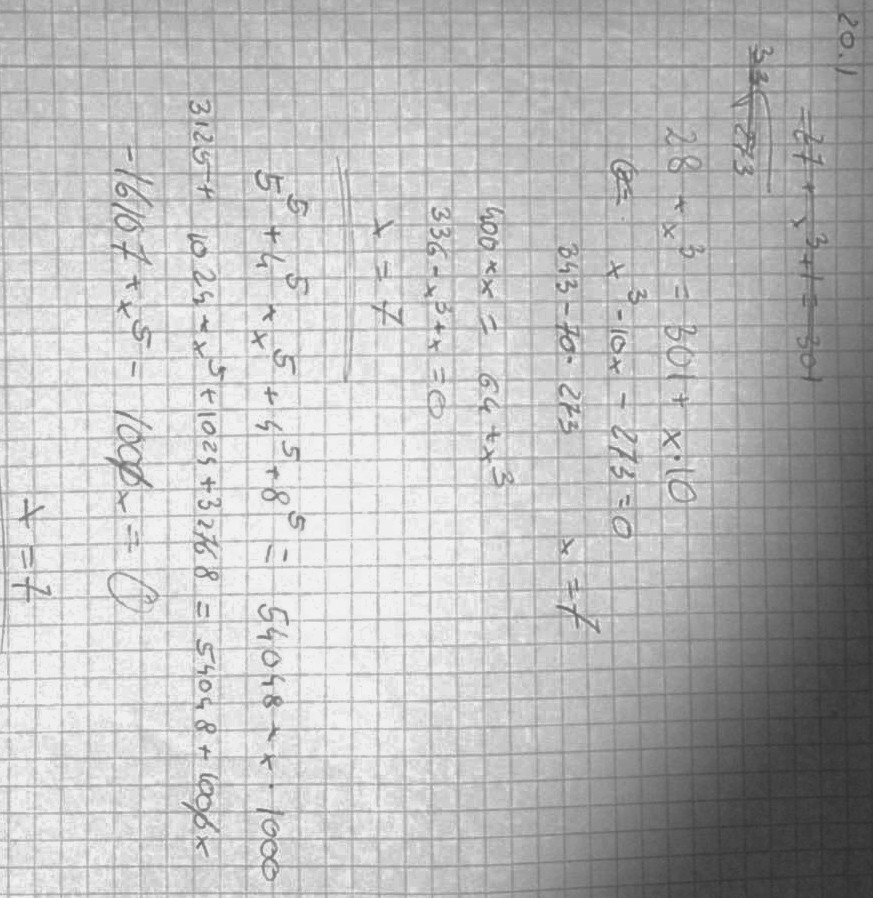 20.1
-27 + x³+1 = 301
33√273
28 + x³ = 301 + x·10
x³ - 10x - 273 = 0
343 - 70 - 273 x = 7
400 + x = 64 + x³
336 - x³ + x = 0
x = 7
5⁵ + 4⁵ + x⁵ + 4⁵ + 8⁵ = 54048 + x · 1000
3125 + 1024 + x⁵ + 1024 + 32768 = 54048 + 1000x
-16107 + x⁵ - 1000x = 0
x = 7